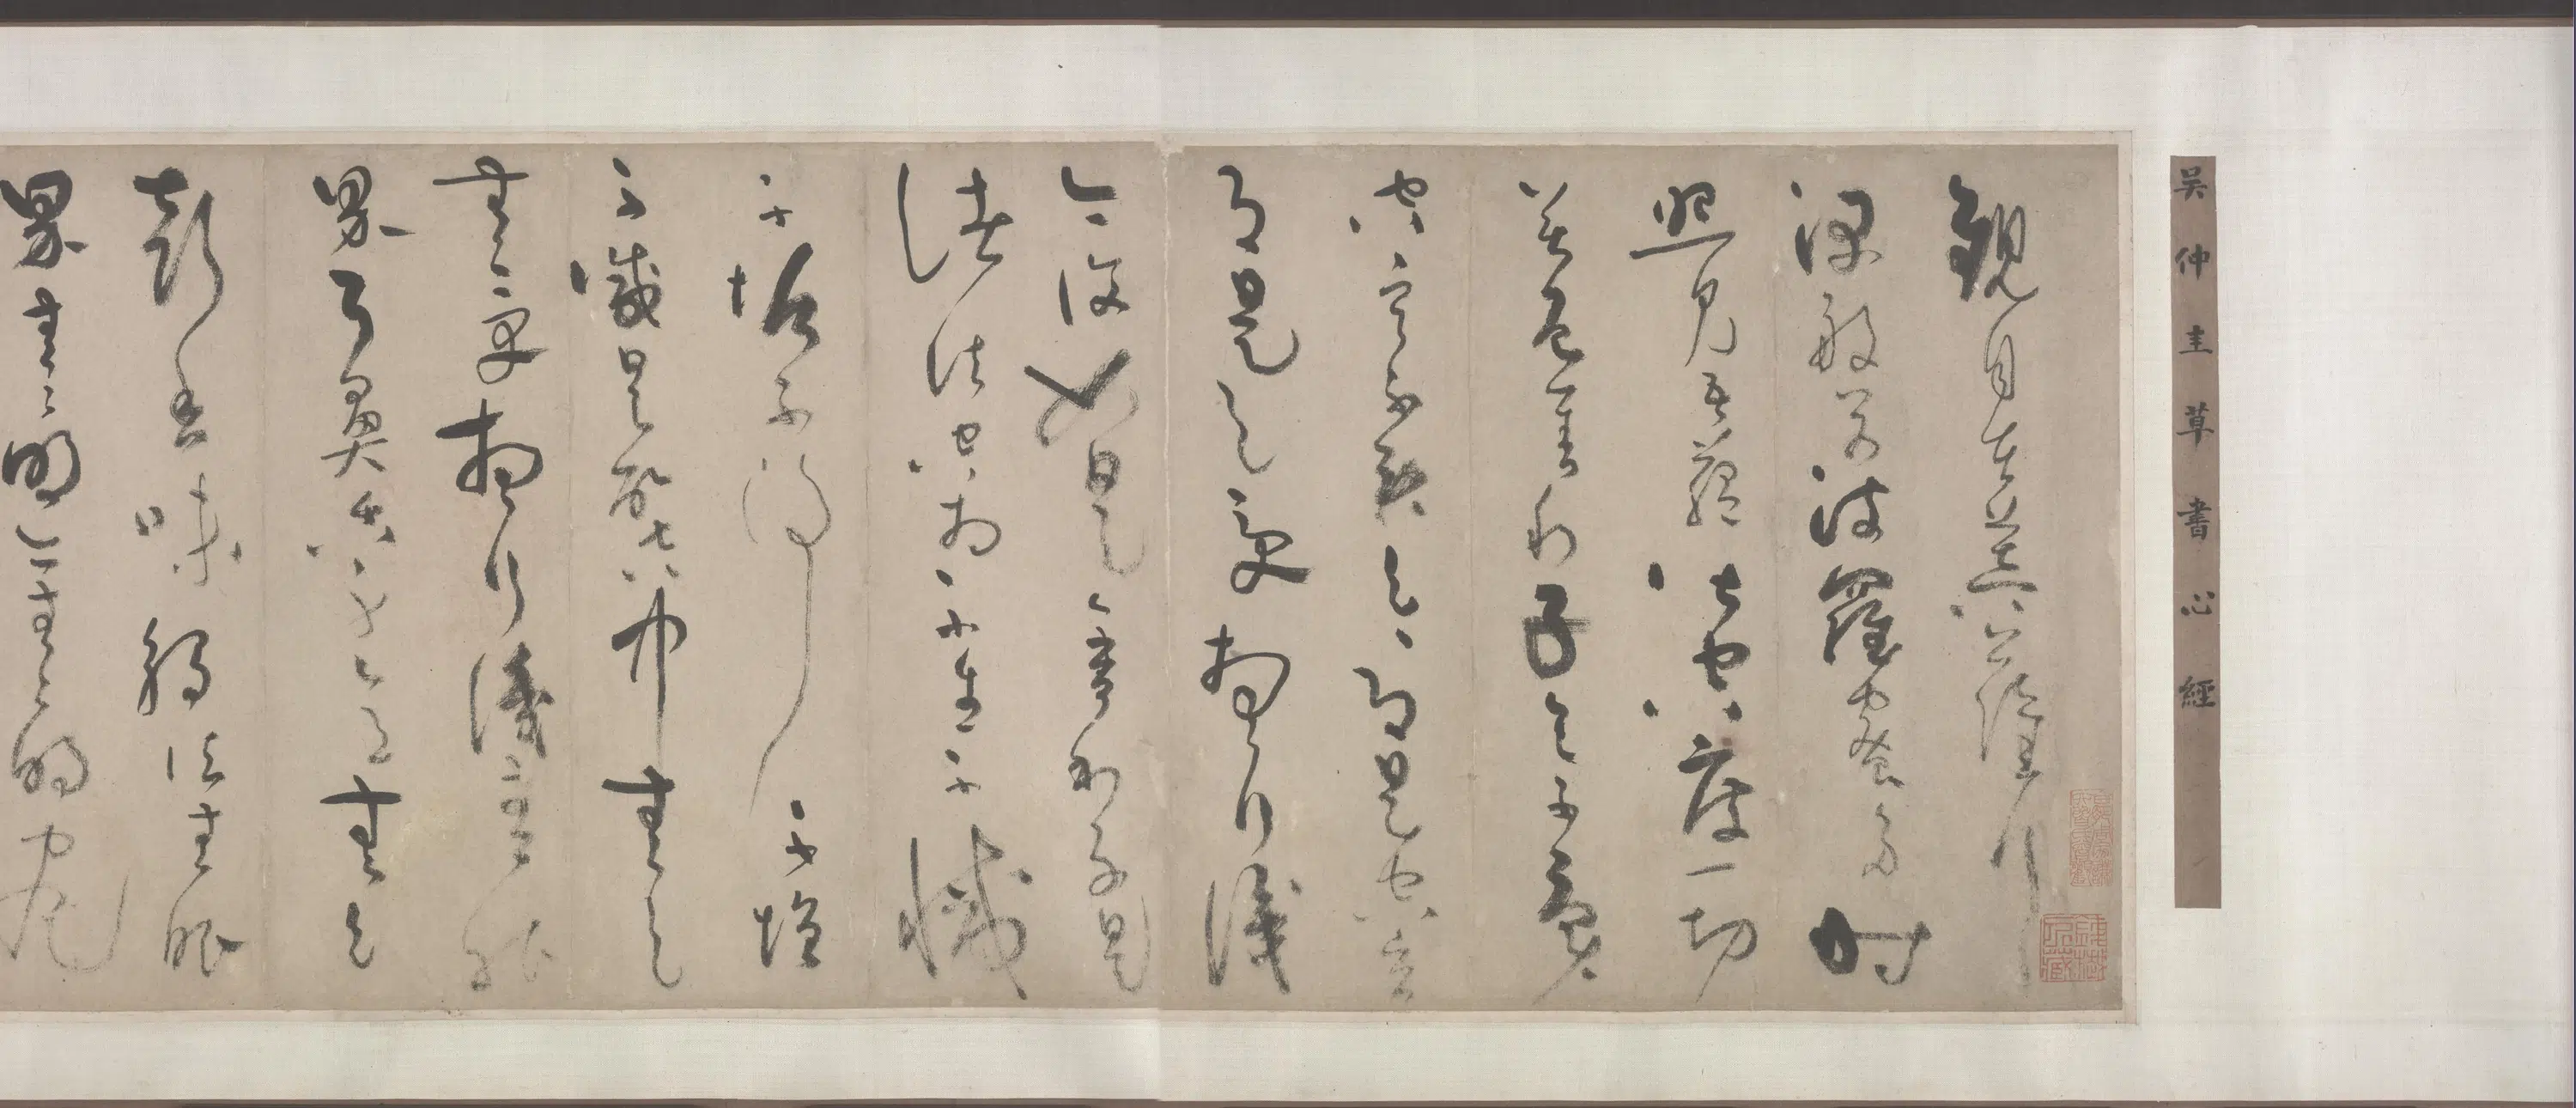 吳仲圭草書心經
觀自在菩薩行
深般若波羅蜜多時
照見五蘊皆空度一切
苦厄舍利子色不異
空空不異色色即是空空
即是色受想行識
亦復如是舍利子是
諸法空相不生不滅
不垢不淨不增
不減是故空中無色
無受想行識無眼
界耳鼻舌身意無色
聲香味觸法無眼
界無無明亦無無明盡